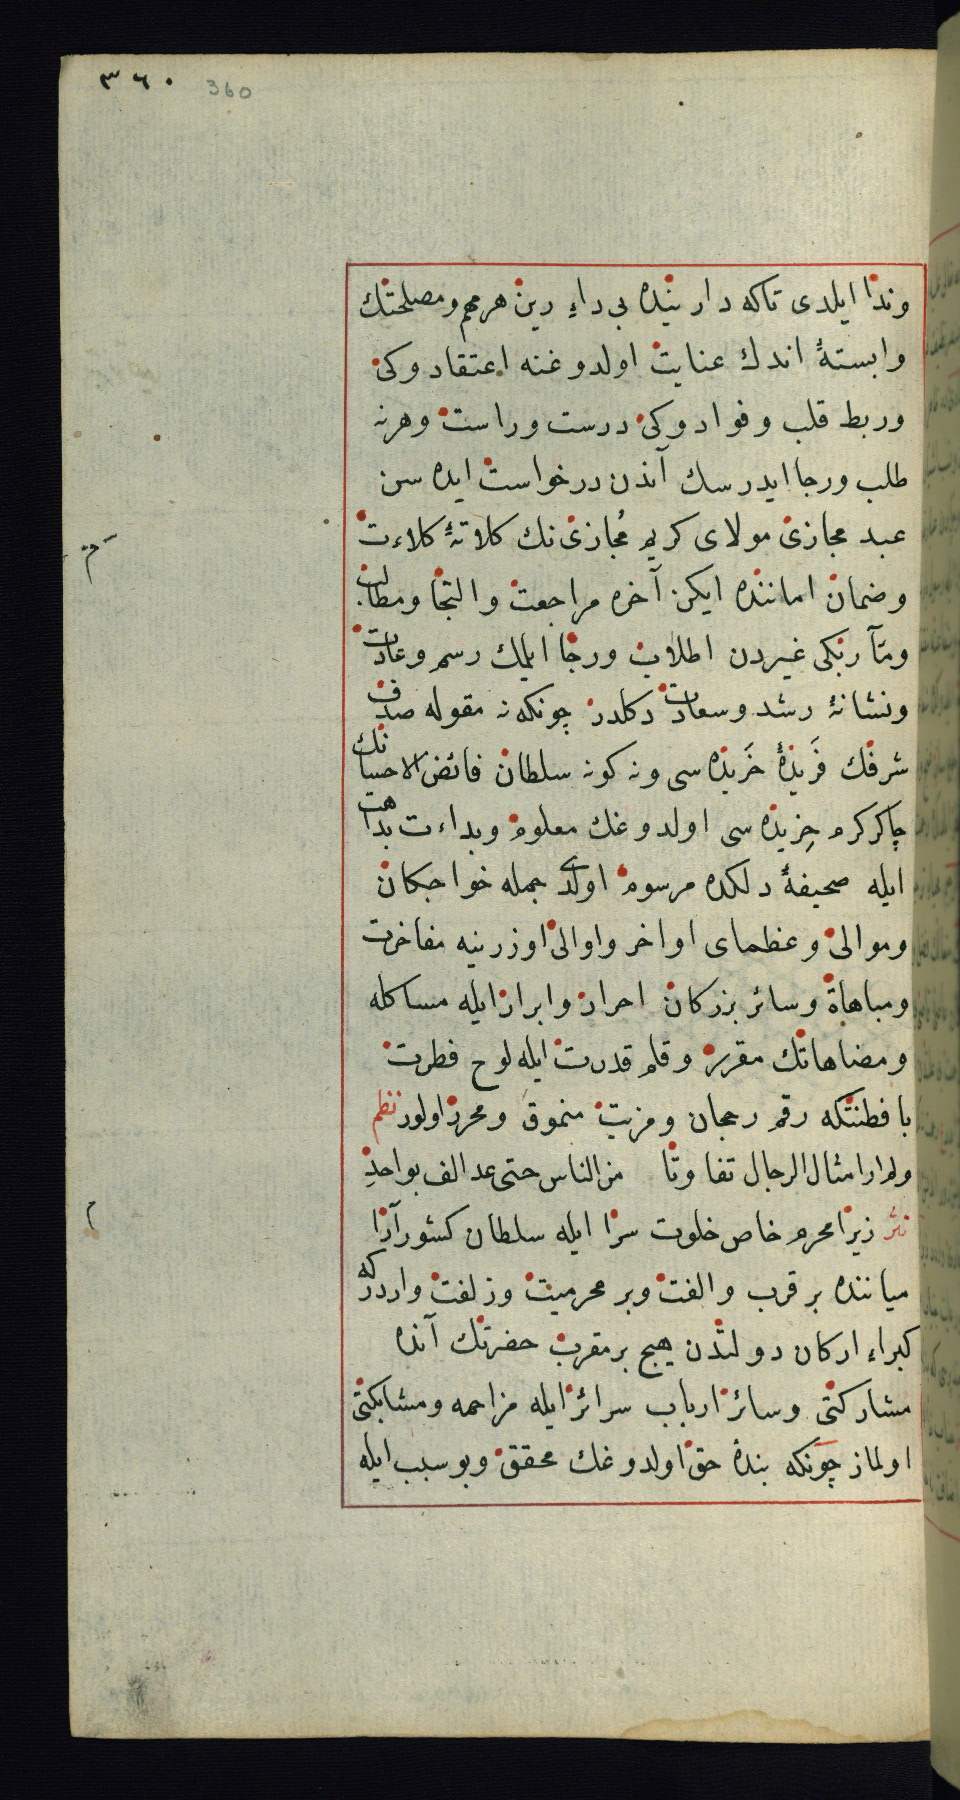 ٣٦٠ 360
وندا ایلدی تاکه دارینده بی داءِ رین هر مهم و مصلحتك
وابستهٔ اندك عنایت اولدوغنه اعتقادوکی
وربط قلب وفوادوکی درست وراست وهرنه
طلب ورجا ایدرسك آندن درخواست ایده سن
عبد مجازی مولای کریم مُجازی نك کلاتهٔ کلاءت
وضمان اماننده ایکن آخره مراجعت والتجا ومطالب
ومآربکی غیردن اطلاب ورجا ایلمك رسم وعادت
ونشانهٔ رشد وسعادت دکلدر چونکه نه مقوله صدف
شرفك فَریدهٔ خَریده سی ونه کونه سلطان فائض الاحسانك
چاکر کرم جِزیده سی اولدوغك معلوم وبداءت بداهت
ایله صحیفهٔ دلکده مرسوم اولدی جمله خواجکان
وموالی وعظمای اواخر واوالی اوزرینه مفاخرت
ومباهاة وسائر بزرکان احرار وابرار ایله مساکله
ومضاهاتك مقرر وقلم قدرت ایله لوح فطرت
با فطنتکه رقم رجحان ومزیت منموق ومحرر اولور نظم
ولم ار امثال الرجال تفاوتا من الناس حتی عد الف بواحدِ
نثر زیرا محرم خاص خلوت سرا ایله سلطان کشور آرا
میاننده بر قرب والفت وبر محرمیت وزلفت واردرکه
کبراء ارکان دولتدن هیچ بر مقرب حضرتك آنده
مشارکتی وسائر ارباب سرائر ایله مزاحمه ومشابکتی
اولماز چونکه بندهٔ حق اولدوغك محقق وبو سبب ایله